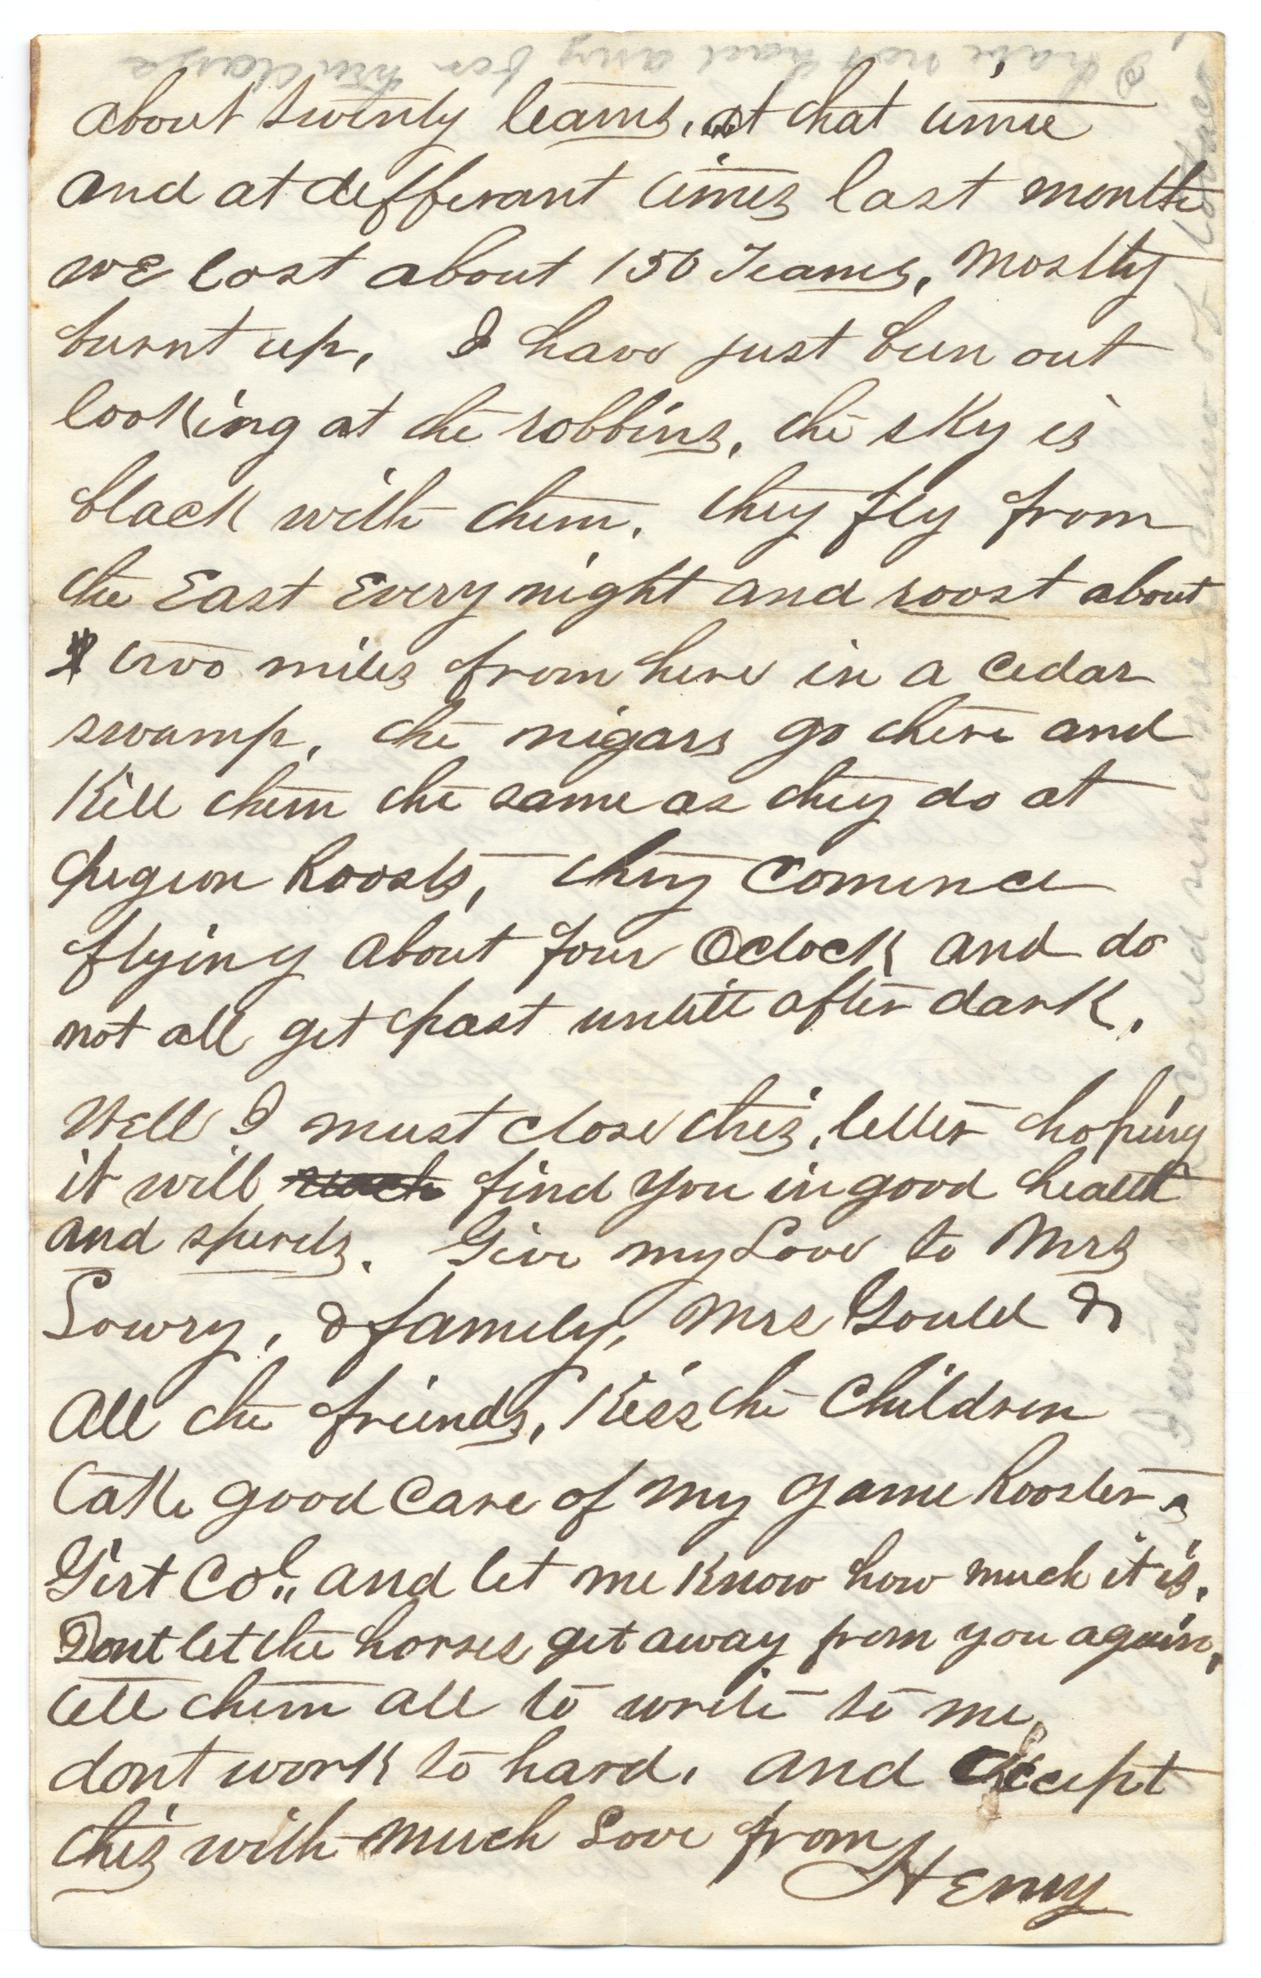 about twenty teams, at that time
and at defferant times last month
we lost about 150 Teams, mostly
burnt up, I have just been out
looking at the robbins, the sky is
black with them, they fly from
the East Every night and roost about
two miles from here in a cedar
swamp, the nigars go there and
Kill them the same as they do at
pegion Roosts, they comence
flying about four Oclock and do
not all get past untill after dark.
Well I must close this, letter hoping
it will reach find you in good health
and sperels. Give my Love to Mrs
Lowry, & family, Mrs Gould &
All the friends, Kiss the Children
take good care of my game Rooster
Girt Col,, and let me Know how much it is.
Dont let the horses get away from you again,
tell them all to write to me,
dont work to hard, and accept
this with much Love from
Henry
I have not had any for two days
I wish you could send me chew of tobacco